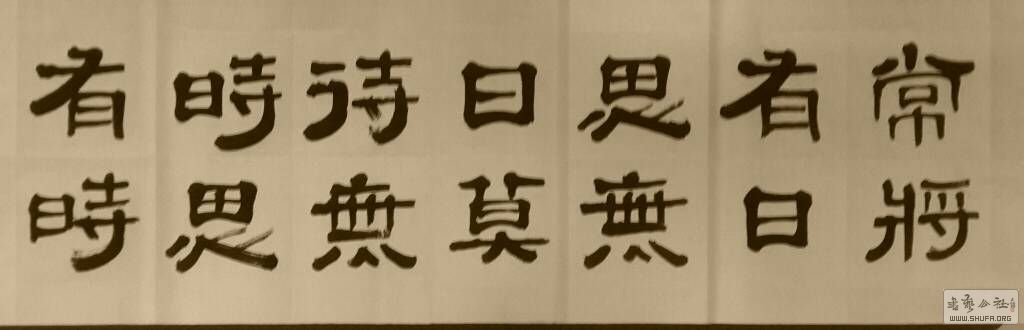 常將
有日
思無
日莫
待無
時思
有時
WWW.SHUFA.ORG